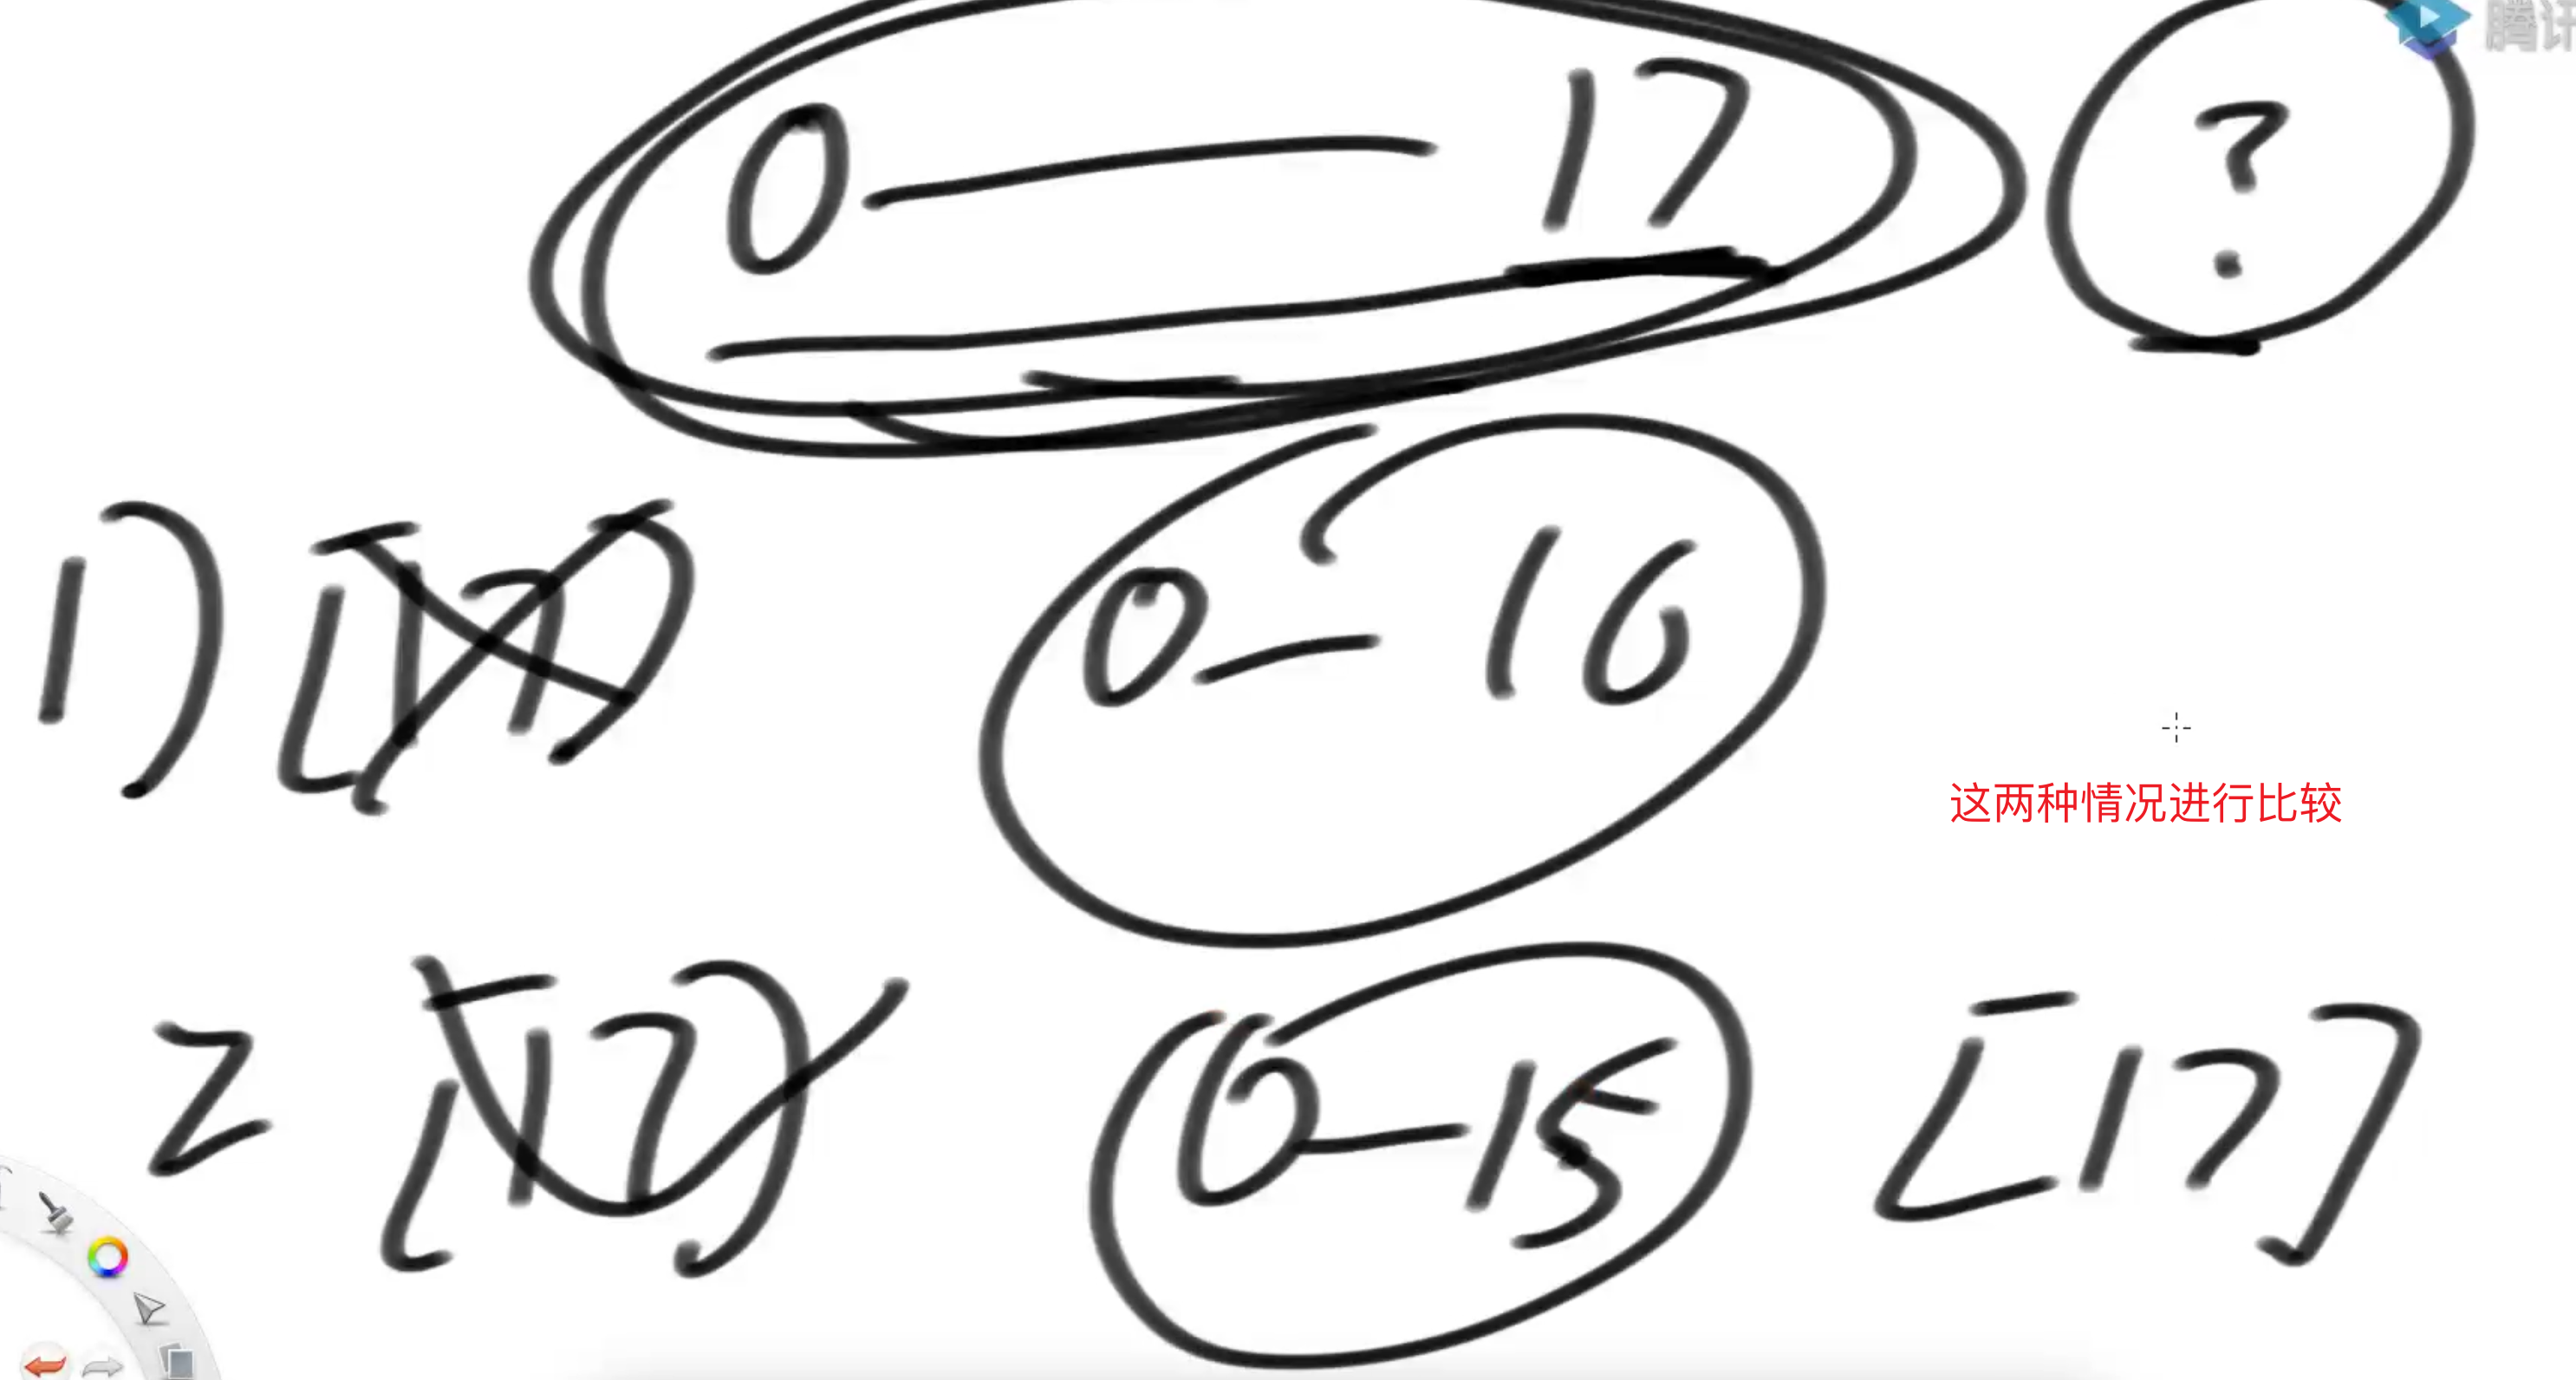 0 — 17 ?
腾讯
1) [17] 0 — 16
这两种情况进行比较
2 [17] 0 — 15 [17]